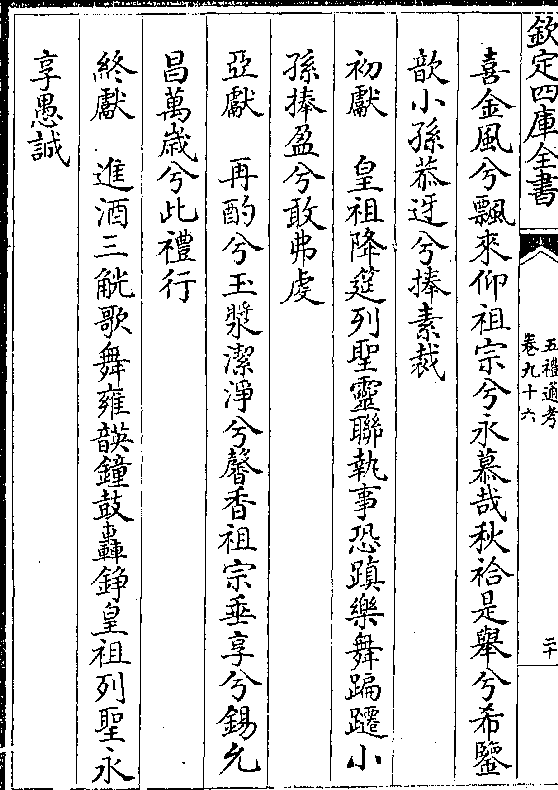 欽定四庫全書
五禮通考
卷九十六
二十
喜金風兮飄來仰祖宗兮永慕哉秋祫是舉兮希鑒
歆小孫恭迓兮捧素裁
初獻　皇祖降筵列聖靈聯執事恐蹎樂舞蹁躚小
孫捧盈兮敢弗虔
亞獻　再酌兮玉漿潔淨兮馨香祖宗垂享兮錫允
昌萬歲兮此禮行
終獻　進酒三觥歌舞雍韺鐘鼓轟錚皇祖列聖永
享愚誠